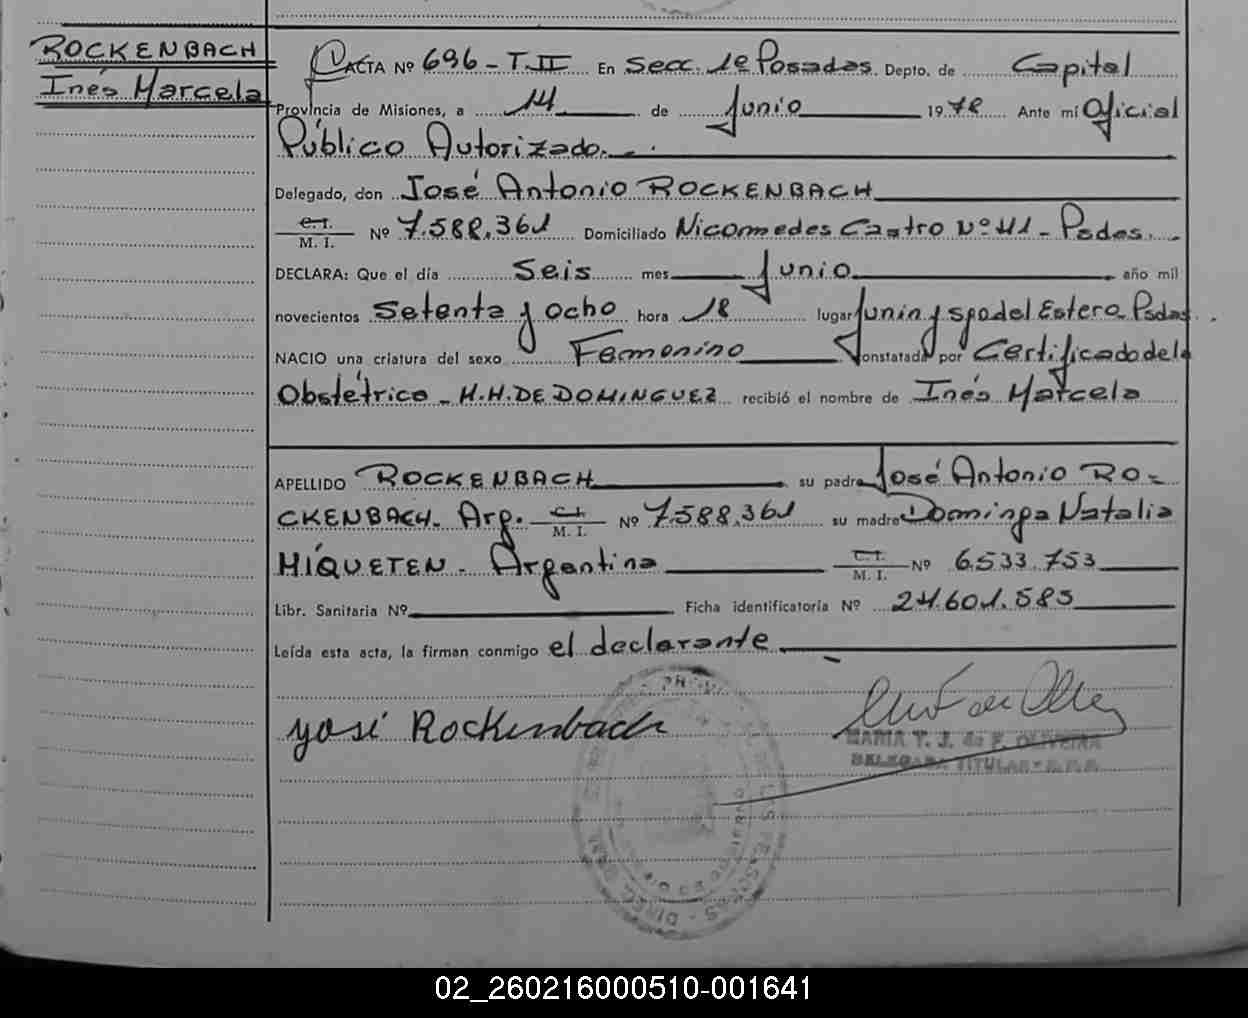 ROCKENBACH
Inés Marcela
ACTA Nº 696 - T. II En Secc. 1ª Posadas. Depto. de Capital
Provincia de Misiones, a 14 de Junio 1978 Ante mí Oficial
Público Autorizado.
Delegado, don José Antonio ROCKENBACH
C. I.
M. I. Nº 7.588.361 Domiciliado Nicomedes Castro Nº 41 - Psdas.
DECLARA: Que el día Seis mes Junio año mil
novecientos Setenta y ocho hora 18 lugar Junin y Sgo del Estero Psdas.
NACIO una criatura del sexo Femenino Constatada por Certificado de la
Obstétrica - H.H. DE DOMINGUEZ recibió el nombre de Inés Marcela
APELLIDO ROCKENBACH su padre José Antonio RO-
CKENBACH. Arg. C. I. M. I. Nº 7.588.361 su madre Dominga Natalia
MÍQUETEN - Argentina C. I. M. I. Nº 6.533.753
Libr. Sanitaria Nº Ficha identificatoria Nº 24.601.585
Leída esta acta, la firman conmigo el declarante
José Rockenbach
MARIA T. J. de F. OLIVEIRA
DELEGADA TITULAR
02_260216000510-001641